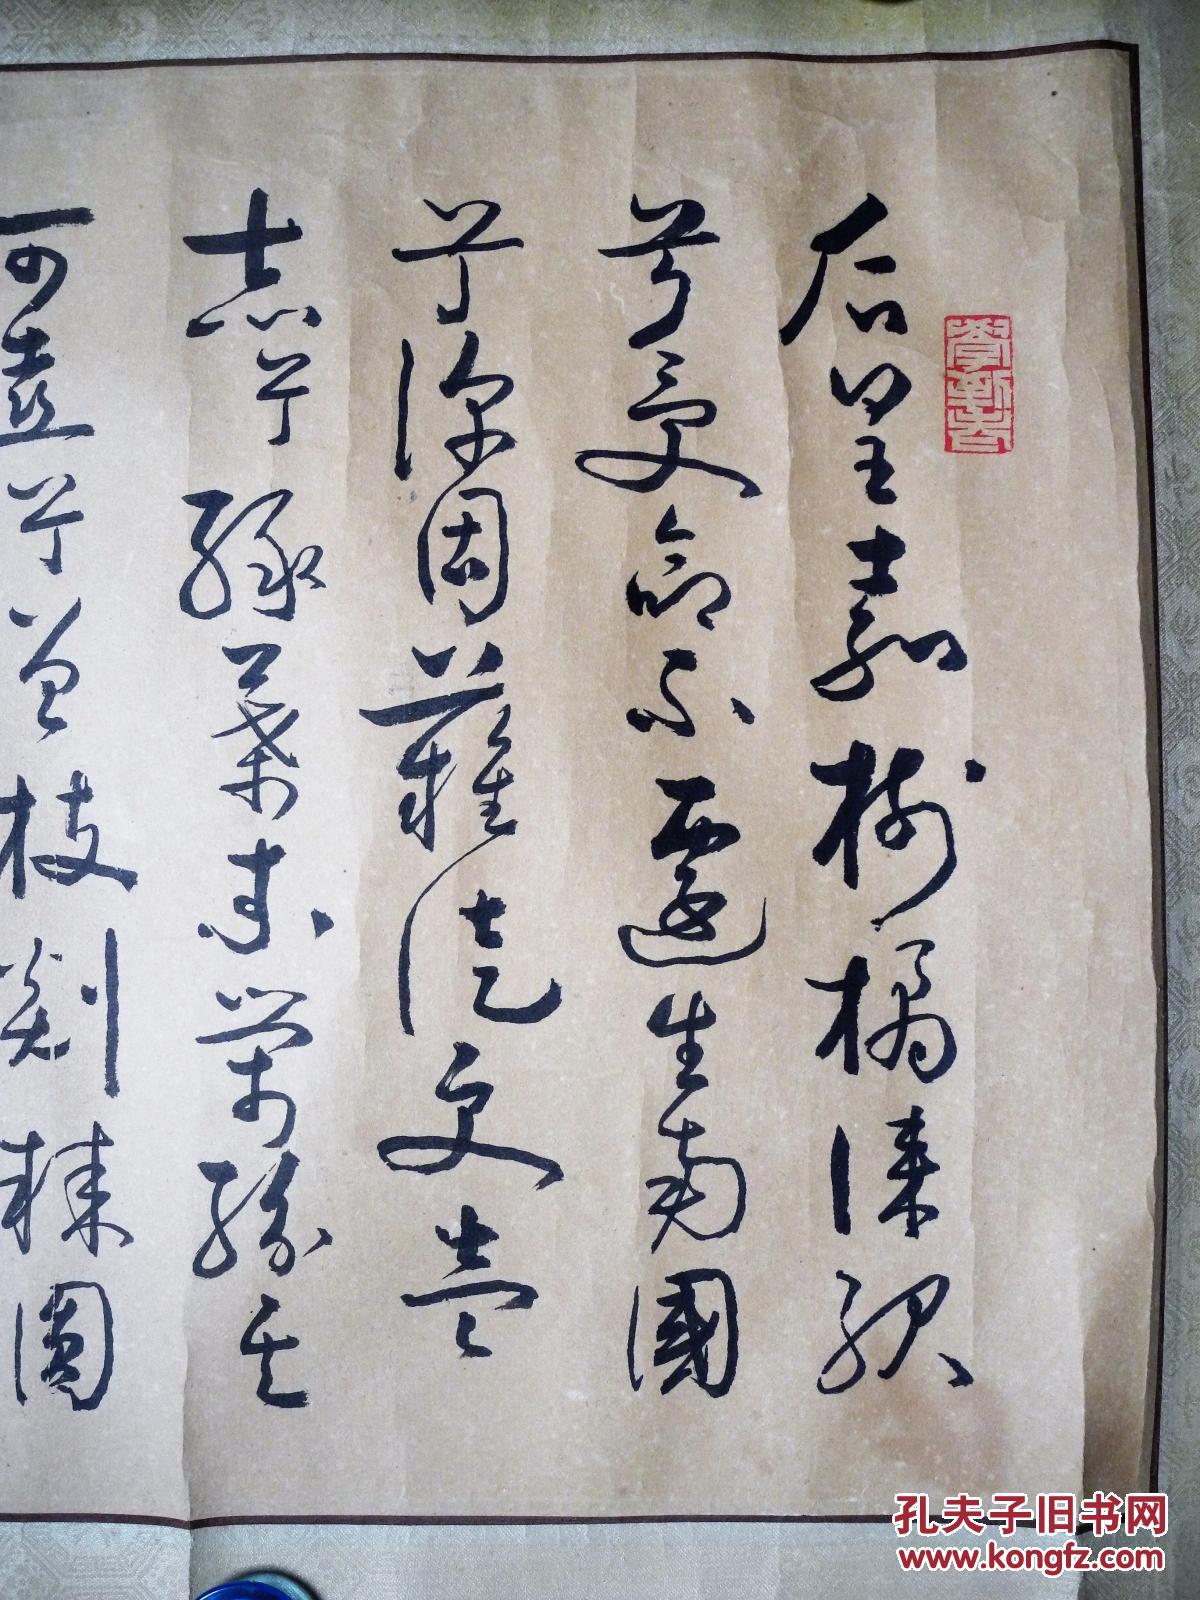 后皇嘉樹橘徠服
兮受命不遷生南國
兮深固難徙更壹
志兮緑葉素榮紛其
可喜兮曾枝剡棘圓
孔夫子旧书网
www.kongfz.com